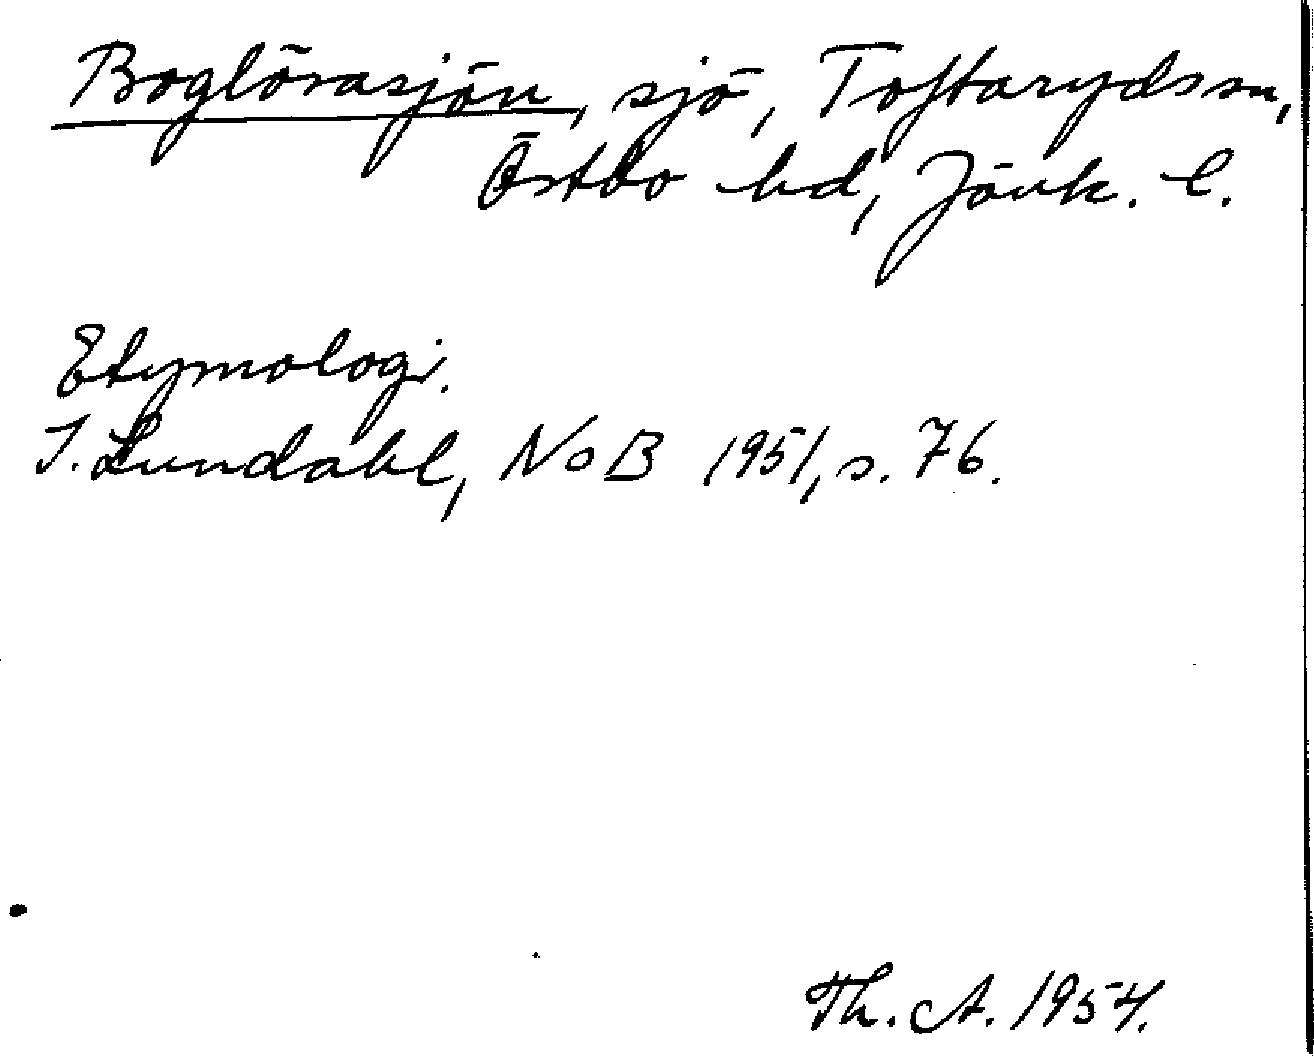 Boglörasjön, sjö, Toftaryds sn,
Östbo hd, Jönk. l.
Etymologi.
I. Lundahl, NoB 1951, s. 76.
Th. A. 1954.